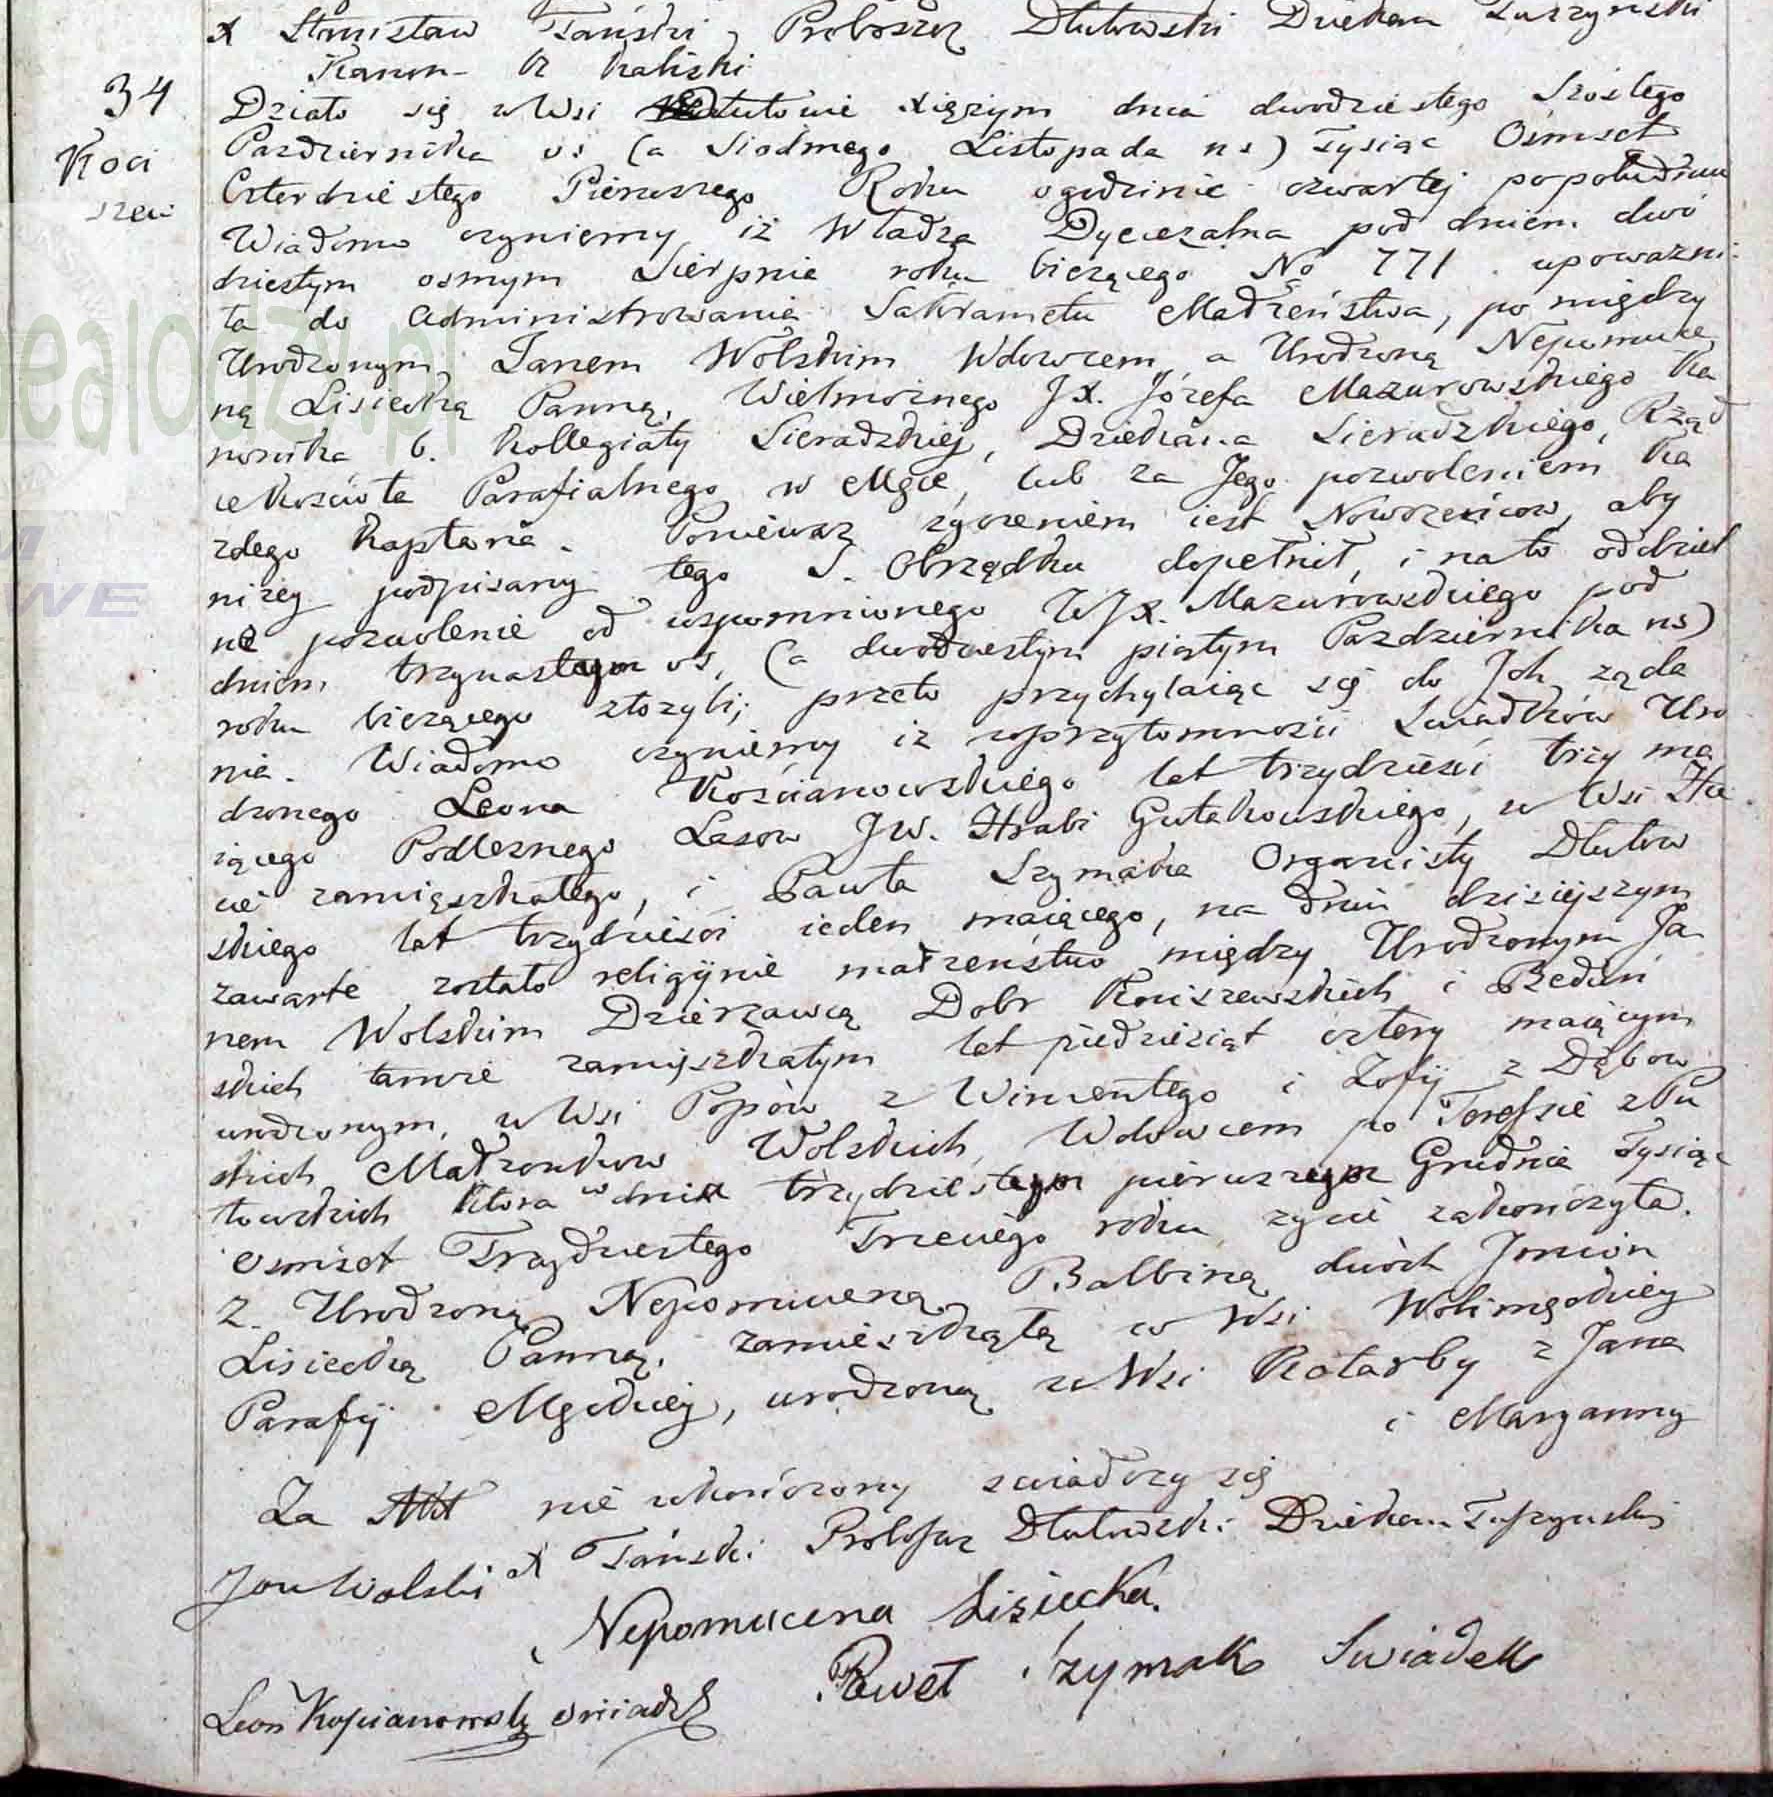 X Stanisław Tański, Proboszcz Dłutowski Dziekan Tuszyński
Kanon- K Kaliski
34
Koci
szew
Działo się w Wsi Dłutowie Xiężym dnia dwodziestego Szóstego
Pazdziernika vs (a Siodmego Listopada ns) Tysiąc Ośmset
Czterdziestego Pierwszego Roku o godzinie czwartej popołudniu
Wiadomo czyniemy iż Władza Dyecezalna pod dniem dwó
dziestym osmym Sierpnia roku bieżącego No 771. upoważni-
ła do administrowania Sakrametu Małżeństwa, po między
Urodzonym Janem Wolskim Wdowcem a Urodzoną Nepomuce
ną Lisiecką Panną, Wielmożnego JX. Józefa Mazurowskiego Ka
nonika b. Kollegiaty Sieradzkiej, Dziekana Sieradzkiego, Rząd
ce Kościoła Parafialnego w Mgce, lub za Jego pozwoleniem Ka
zdego Kapłana. Ponieważ życzeniem iest Nowożeńcow, aby
niżej podpisany tego S. Obrządku dopełnił, i na to oddziel
ne pozwolenie od wspomnionego WJX. Mazurowskiego pod
dniem trzynastym vs, (a dwódziestym piątym Pazdziernika ns)
roku bieżącego złożyli; przeto przychylaiąc się do Ich żąda
nia. Wiadomo czyniemy iż w przytomności Swiadków Uro
dzonego Leona Kościanowskiego lat trzydzieści trzy ma
iącego Podleśnego Lasow JW. Hrabi Gutakowskiego, w Wsi Hu
cie zamięszkałego, i Pawła Szymaka Organisty Dłutow
skiego lat trzydzieści ieden maiącego, na dniu dzisiejszym
zawarte zostało religijnie małżeństwo między Urodzonym Ja
nem Wolskim Dzierżawcą Dobr Kociszewskich i Beduń
skich tamże zamięszkałym lat piędziesiąt cztery maiącym
urodzonym, w Wsi Popów z Wincentego i Zofij z Dąbow
skich Małżonkow Wolskich, Wdowcem po Teressie z Pu
towskich ktora w dniu trzydziestym pierwszym Grudnia Tysiąc
Osmset Trzydziestego Trzeciego roku życie zakończyła.
Z. Urodzoną Nepomuceną Balbiną dwóch Jmion
Lisiecką Panną, zamieszkałą w Wsi Wolimgckiey
Parafij Mgckiey, urodzoną w Wsi Kotarby z Jana
i Maryanny
Za Akt nie ukończony swiadczy się
X Tański Proboszcz Dłutowski Dziekan Tuszynski
Jan Wolski
Nepomucena Lisiecka.
Paweł Szymak Swiadek
Leon Kościanowski swiadek